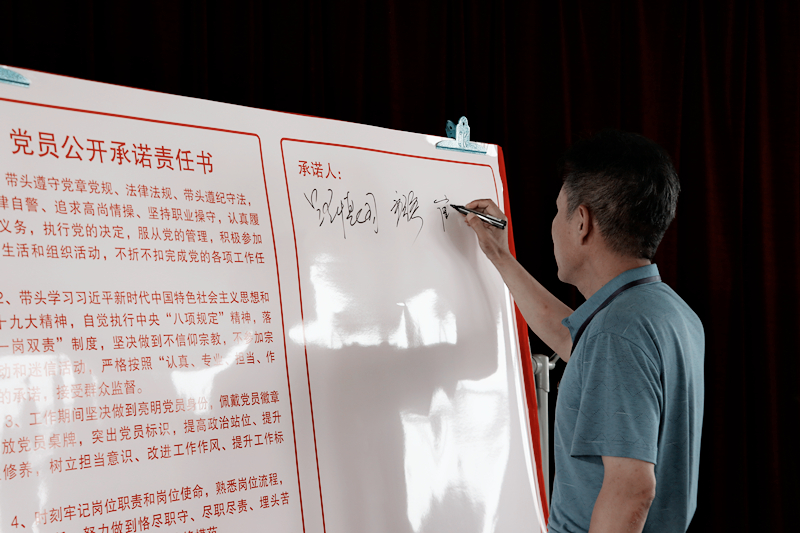 党员公开承诺责任书
带头遵守党章党规、法律法规、带头遵纪守法，
律自警、追求高尚情操、坚持职业操守，认真履
义务，执行党的决定，服从党的管理，积极参加
生活和组织活动，不折不扣完成党的各项工作任
2、带头学习习近平新时代中国特色社会主义思想和
十九大精神，自觉执行中央“八项规定”精神，落
一岗双责”制度，坚决做到不信仰宗教，不参加宗
动和迷信活动，严格按照“认真、专业、担当、作
的承诺，接受群众监督。
3、工作期间坚决做到亮明党员身份，佩戴党员徽章
放党员桌牌，突出党员标识，提高政治站位、提升
修养，树立担当意识、改进工作作风、提升工作标
4、时刻牢记岗位职责和岗位使命，熟悉岗位流程，
努力做到恪尽职守、尽职尽责、埋头苦
承诺人：